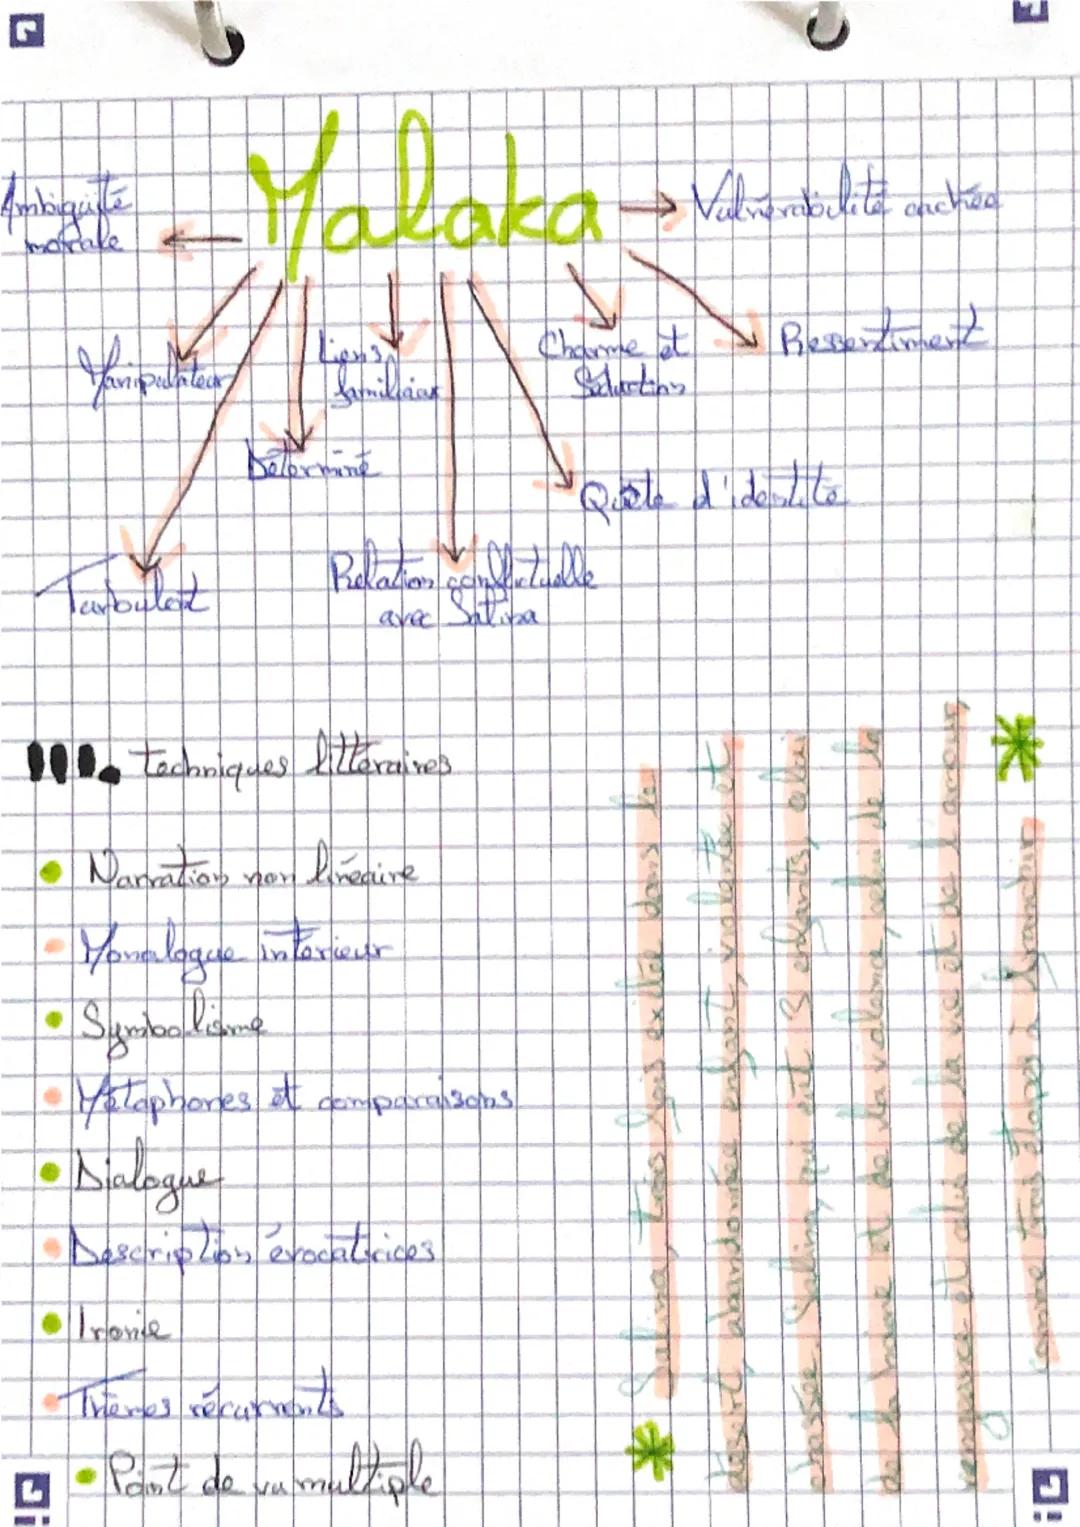 Malaka
Ambiguïté
morale
Vulnérabilité cachée
Manipulateur
Liens
familiaux
Charme et
Séduction
Ressentiment
Déterminé
Quête d'identité
Turbulent
Relation conflictuelle
avec Salina
III. Techniques littéraires
Narration non linéaire
Monologue intérieur
Symbolisme
Métaphores et comparaisons
Dialogue
Description évocatrices
Ironie
Thèmes récurrents
Point de vu multiple
Salina, trois fois exilée dans le
désert, abandonnée enfant, violentée et
chassée. Salina, qui eut 3 enfants, celui
de la haine et de la violence, celui de la
vengeance et celui de la vie et de l'amour,
comme trois étapes à franchir